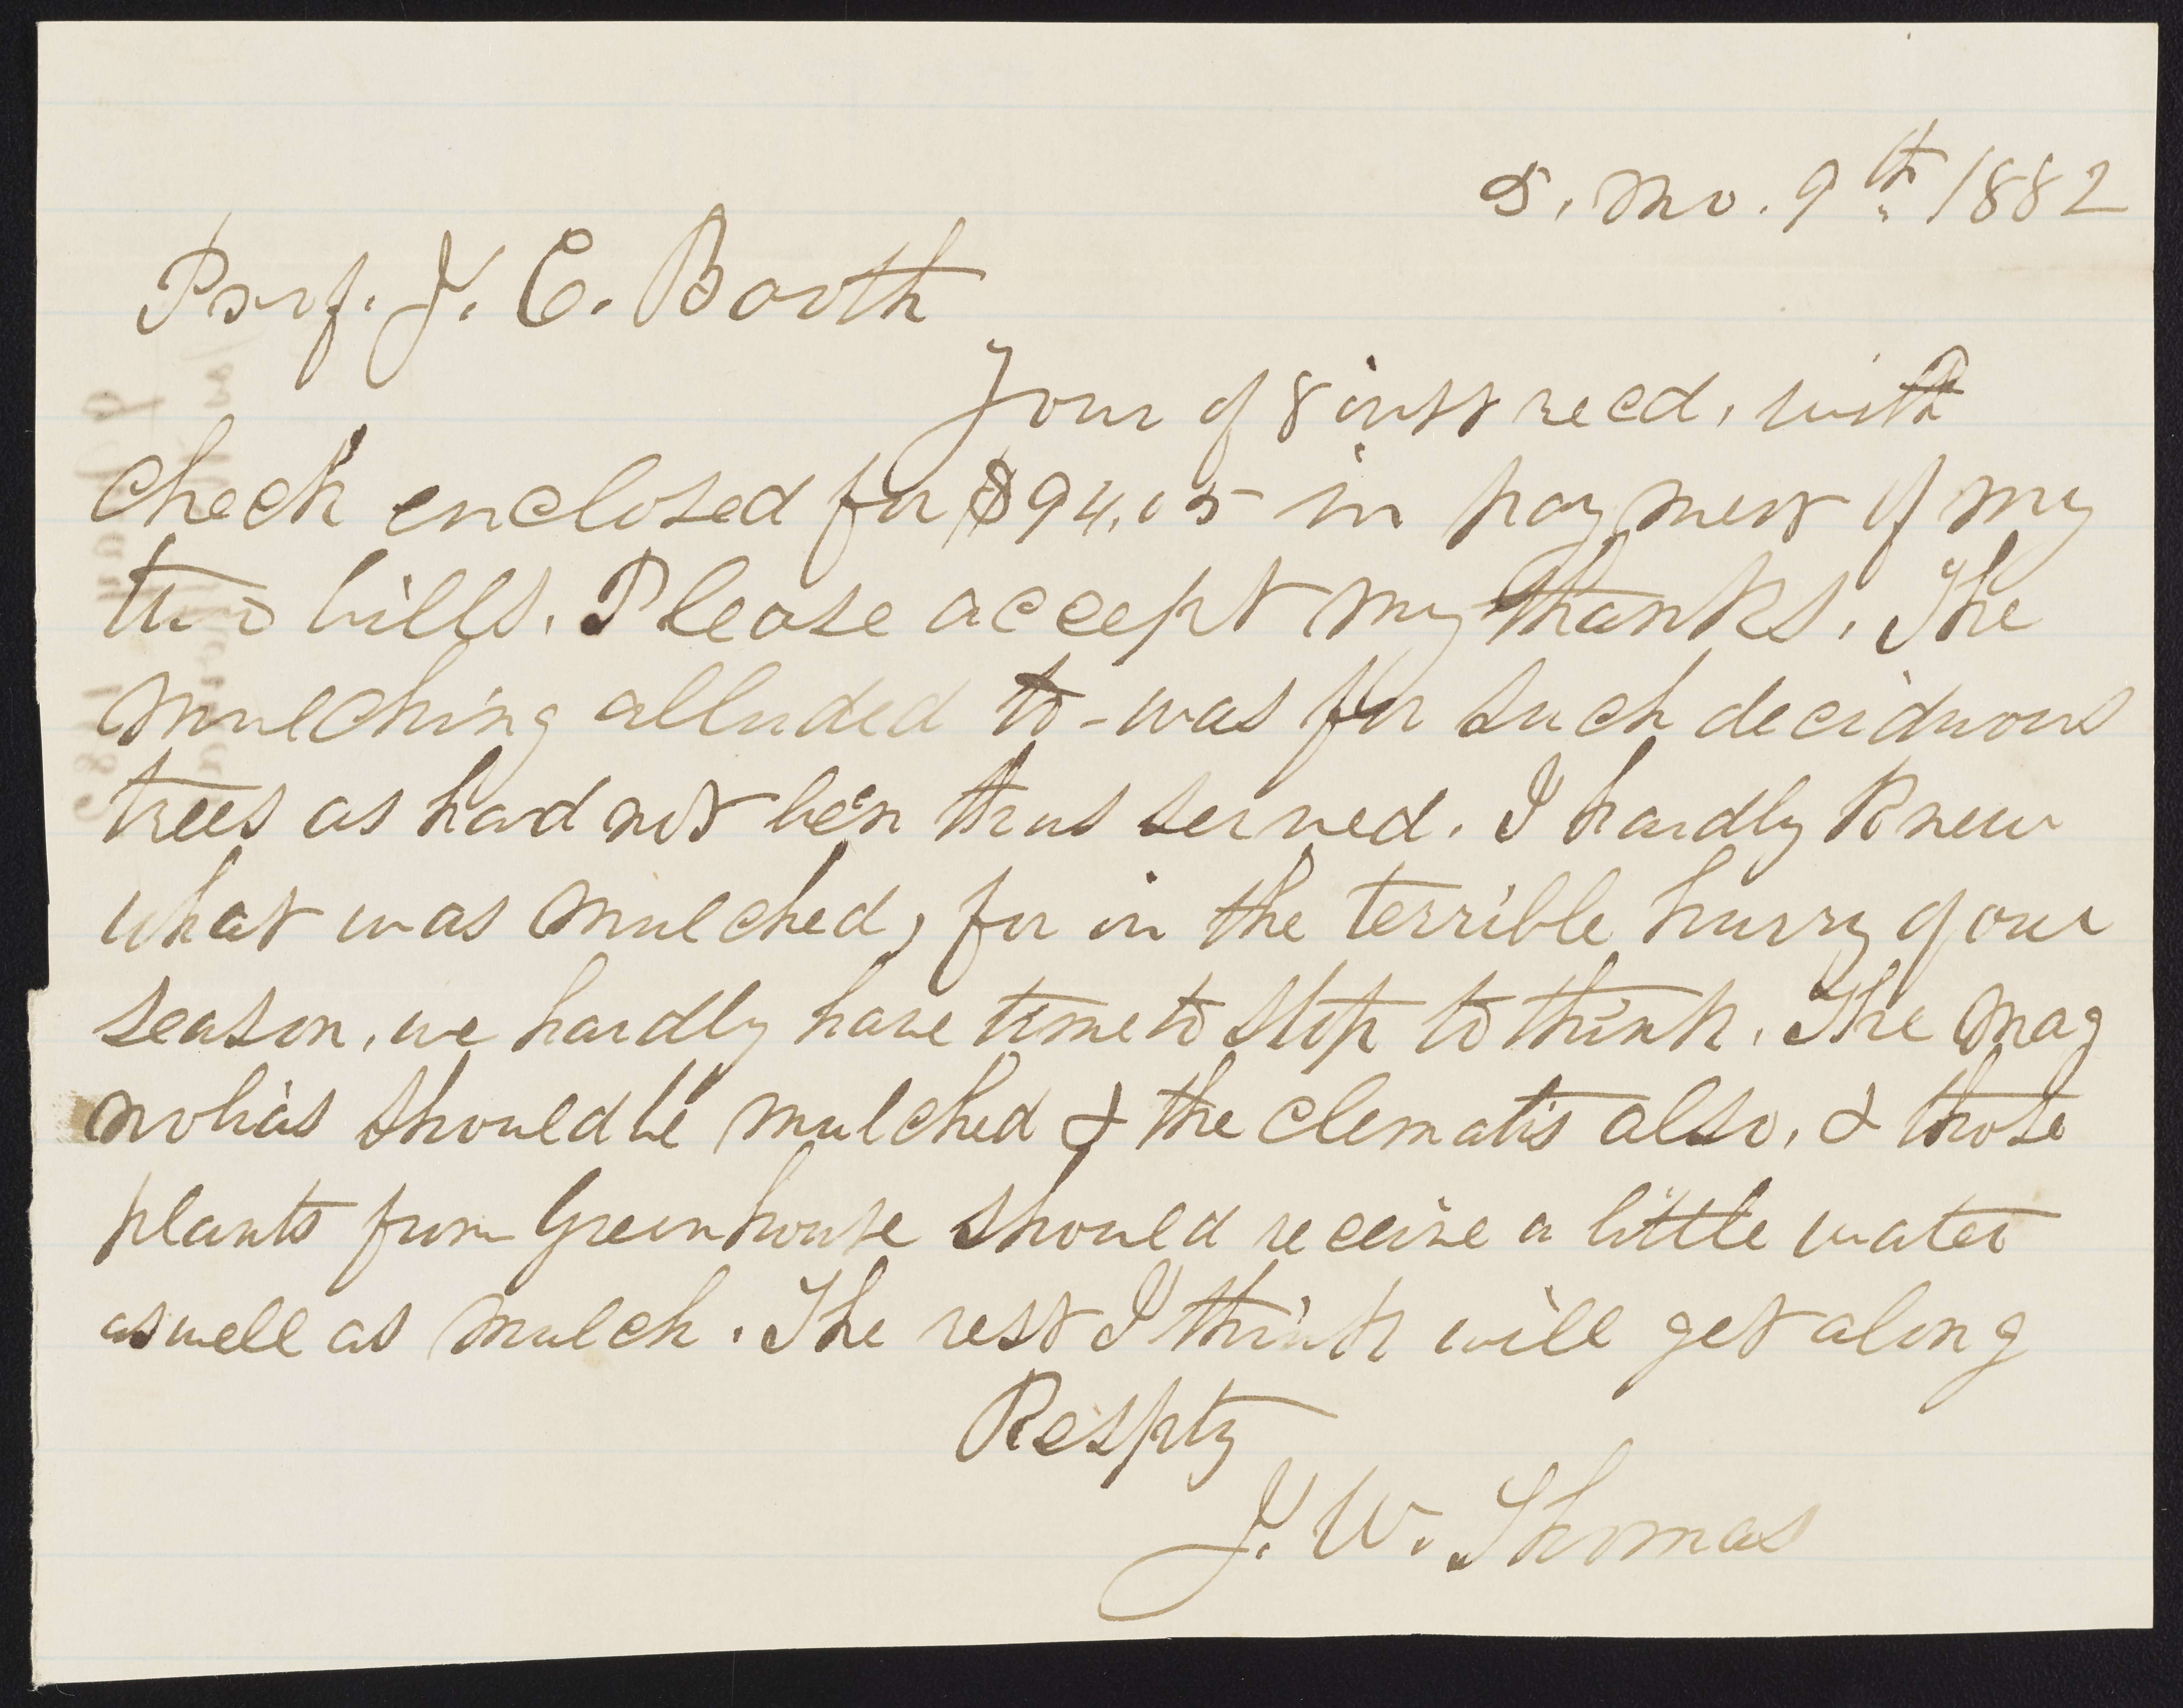 5. Mo. 9th. 1882
Prof. J. C. Booth
Your of 8 inst recd, with
check enclosed for $94.05 in payment of my
two bills. Please accept my thanks. The
mulching alluded to - was for such deciduous
trees as had not been thus served. I hardly knew
what was mulched, for in the terrible hurry of our
season, we hardly have time to stop to think. The mag
nolias should be mulched & the clematis also, & those
plants from Greenhouse should receive a little water
as well as mulch. The rest I think will get along
Respty
J. W. Thomas